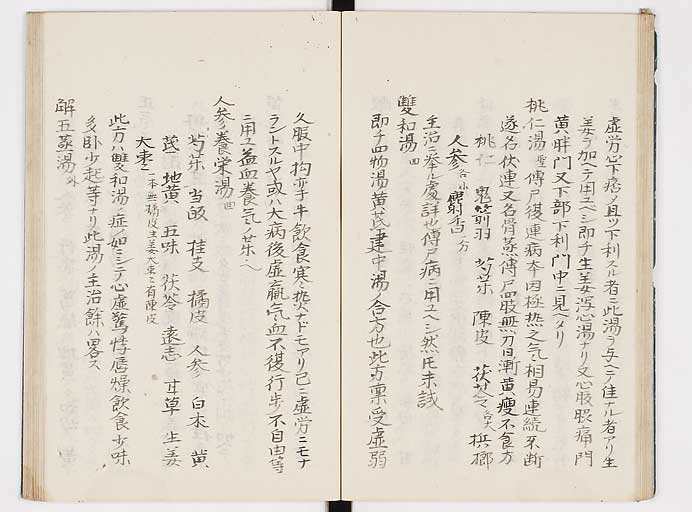 虚労心下痞ノ且ツ下利スル者ニ此湯ヲ与ヘテ佳ナル者アリ生
姜ヲ加ヘテ用ユヘシ即チ生姜瀉心湯ナリ又心腹脹痛門
黄胖門又下部下利門中ニ見ヘタリ
桃仁湯 聖 傳尸復連病本因極热之气相易連続不断
遂名伏連又名骨蒸傳尸四肢無力日漸黄痩不食方
桃仁 鬼箭羽 芍茱 陳皮 茯苓 各大 梹榔
人参 各小 麝香 一分
主治ニ挙ル處詳也傳尸病ニ用ユヘシ然㆑未試
雙和湯 四
即チ四物湯黄茋建中湯ノ合方也此方禀受虚弱
久服中拘牽牛飲食寒热ナドモアリ已ニ虚労ニモナ
ラントスルヤ或ハ大病後虚羸气血不復行歩不自由等
ニ用ユ益血養气ノ茱也
人参養栄湯 四
芍茱 当皈 桂支 橘皮 人参 白朮 黄
茋 地黄 五味 茯苓 遠志 甘草 生姜
大棗 本無橘皮生姜大棗ニ有陳皮
此方ハ雙和湯ノ症ノ如ニシテ心虚驚悸唇燥飲食少味
多卧少起等ナリ此湯ノ主治餘ハ畧ス
解五蒸湯 外